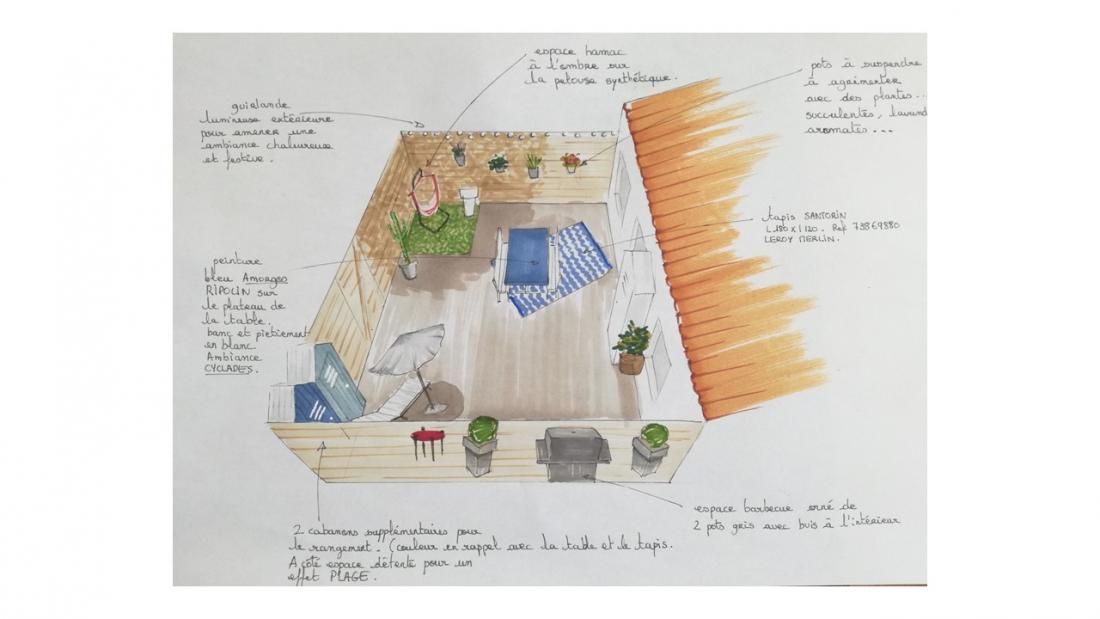 espace hamac
à l'ombre sur
la pelouse synthétique.
pots à suspendre
à agrémenter
avec des plantes...
succulentes, lavand
aromates...
guirlande
lumineuse extérieure
pour amener une
ambiance chaleureuse
et festive.
tapis SANTORIN
L.180 x l 120. Ref 73869880
LEROY MERLIN.
peinture
bleu Amorgos
RIPOLIN sur
le plateau de
la table.
banc et pietement
en blanc
Ambiance
CYCLADES.
espace barbecue orné de
2 pots gris avec buis à l'intérieur
2 cabanons supplémentaires pour
le rangement. (couleur en rappel avec la table et le tapis.
A côté espace détente pour un
effet PLAGE.